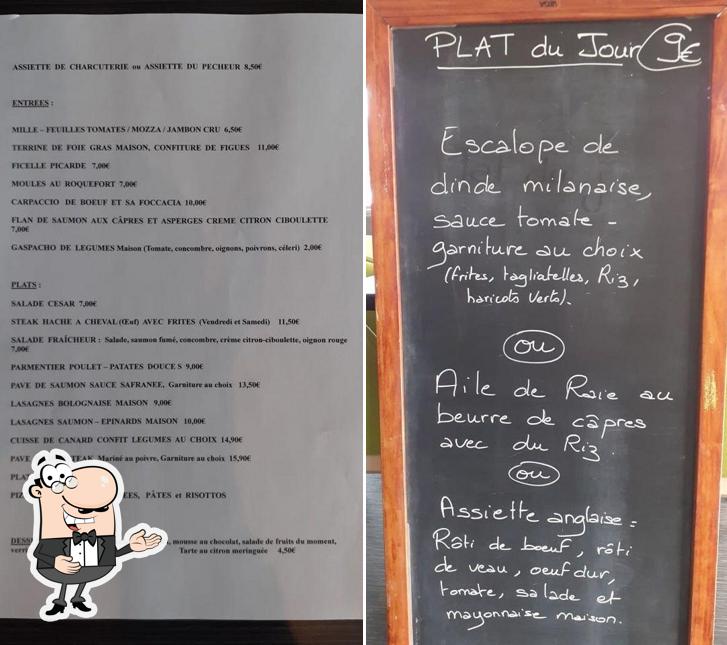 ASSIETTE DE CHARCUTERIE ou ASSIETTE DU PECHEUR 8,50€
ENTREES :
MILLE – FEUILLES TOMATES / MOZZA / JAMBON CRU 6,50€
TERRINE DE FOIE GRAS MAISON, CONFITURE DE FIGUES 11,00€
FICELLE PICARDE 7,00€
MOULES AU ROQUEFORT 7,00€
CARPACCIO DE BOEUF ET SA FOCCACIA 10,00€
FLAN DE SAUMON AUX CÂPRES ET ASPERGES CREME CITRON CIBOULETTE
7,00€
GASPACHO DE LEGUMES Maison (Tomate, concombre, oignons, poivrons, céleri) 2,00€
PLATS :
SALADE CESAR 7,00€
STEAK HACHE A CHEVAL (Œuf) AVEC FRITES (Vendredi et Samedi) 11,50€
SALADE FRAÎCHEUR : Salade, saumon fumé, concombre, crème citron-ciboulette, oignon rouge
7,00€
PARMENTIER POULET – PATATES DOUCE S 9,00€
PAVE DE SAUMON SAUCE SAFRANEE, Garniture au choix 13,50€
LASAGNES BOLOGNAISE MAISON 9,00€
LASAGNES SAUMON – EPINARDS MAISON 10,00€
CUISSE DE CANARD CONFIT LEGUMES AU CHOIX 14,90€
PAVE TEAK Mariné au poivre, Garniture au choix 15,90€
PLAT
PIZ EES, PÂTES et RISOTTOS
DESS , mousse au chocolat, salade de fruits du moment,
verri Tarte au citron meringuée 4,50€
PLAT du Jour 9€
Escalope de
dinde milanaise,
sauce tomate -
garniture au choix
(frites, tagliatelles, Riz,
haricots verts).
ou
Aile de Raie au
beurre de câpres
avec du Riz.
ou
Assiette anglaise :
Rôti de boeuf, rôti
de veau, oeuf dur,
tomate, salade et
mayonnaise maison.